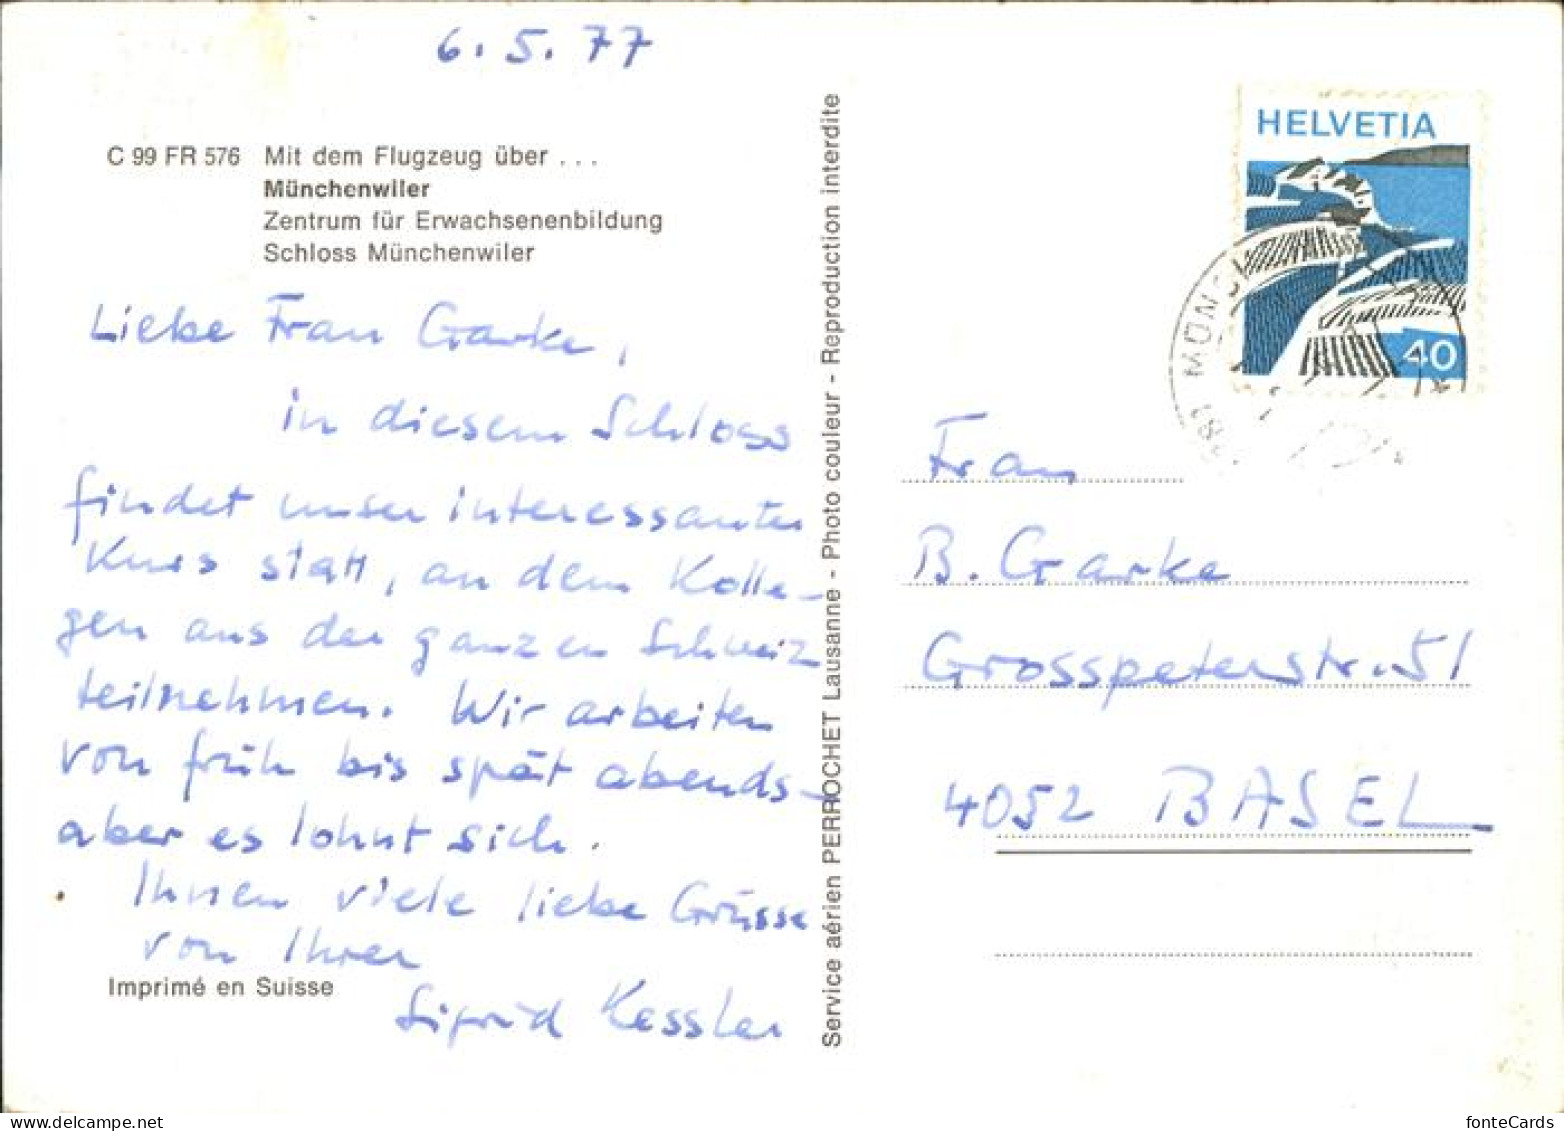 6.5.77
C 99 FR 576 Mit dem Flugzeug über . . .
Münchenwiler
Zentrum für Erwachsenenbildung
Schloss Münchenwiler
Liebe Frau Garke,
in diesem Schloss
findet unser interessanter
Kurs statt, an dem Kolle-
gen aus der ganzen Schweiz
teilnehmen. Wir arbeiten
von früh bis spät abends -
aber es lohnt sich.
Ihnen viele liebe Grüsse
von Ihrer
Sigrid Kessler
Imprimé en Suisse
Service aérien PERROCHET Lausanne - Photo couleur - Reproduction interdite
HELVETIA
40
Frau
B. Garke
Grosspeterstr. 51
4052 BASEL
fonteCards